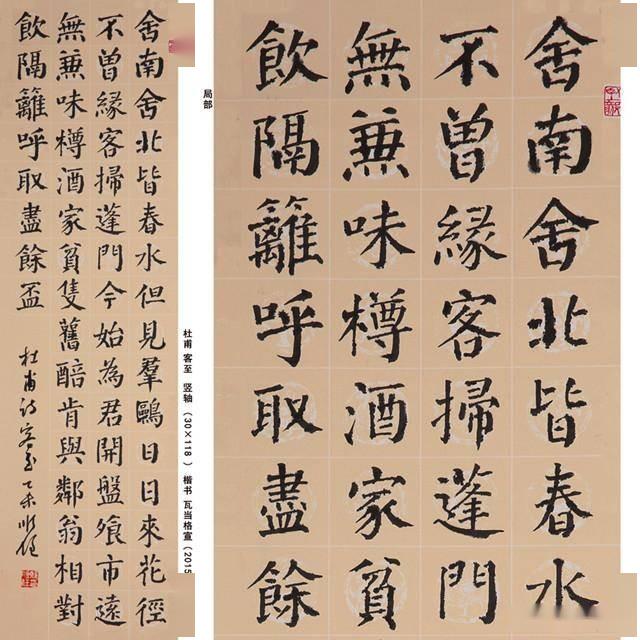 舍南舍北皆春水但見羣鷗日日來花徑
不曾緣客掃蓬門今始為君開盤飧市遠
無兼味樽酒家貧隻舊醅肯與鄰翁相對
飲隔籬呼取盡餘盃
杜甫詩客至乙未
杜甫 客至 竖轴 （30×118 ）楷书 瓦当格宣（2015
局部
舍南舍北皆春水
不曾緣客掃蓬門
無兼味樽酒家貧
飲隔籬呼取盡餘